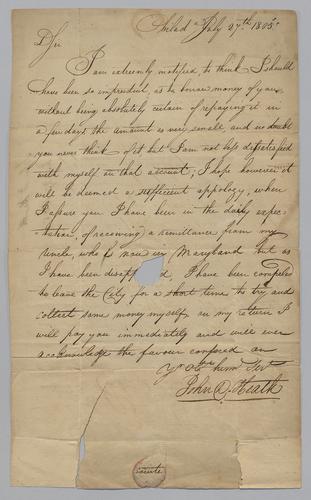 Philad.ª July 27.th 1805.
D Sir
I am extremely mortified to think I should
have been so imprudent, as to borrow money of you
without being absolutely certain of repaying it in
a few days the amount is very small and no doubt
you never think of it but I am not less dissatisfied
with myself on that account; I hope however it
will be deemed a sufficient appology, when
I assure you I have been in the daily expec-
tation of receiving a remittance from my
Uncle, who is now in Maryland but as
I have been disapp d, I have been compeled
to leave the City for a short time to try and
collect some money myself, on my return I
will pay you immediately and will ever
acknowledge the favour confered on
Yr Obt. humb Servt
John D. Heath